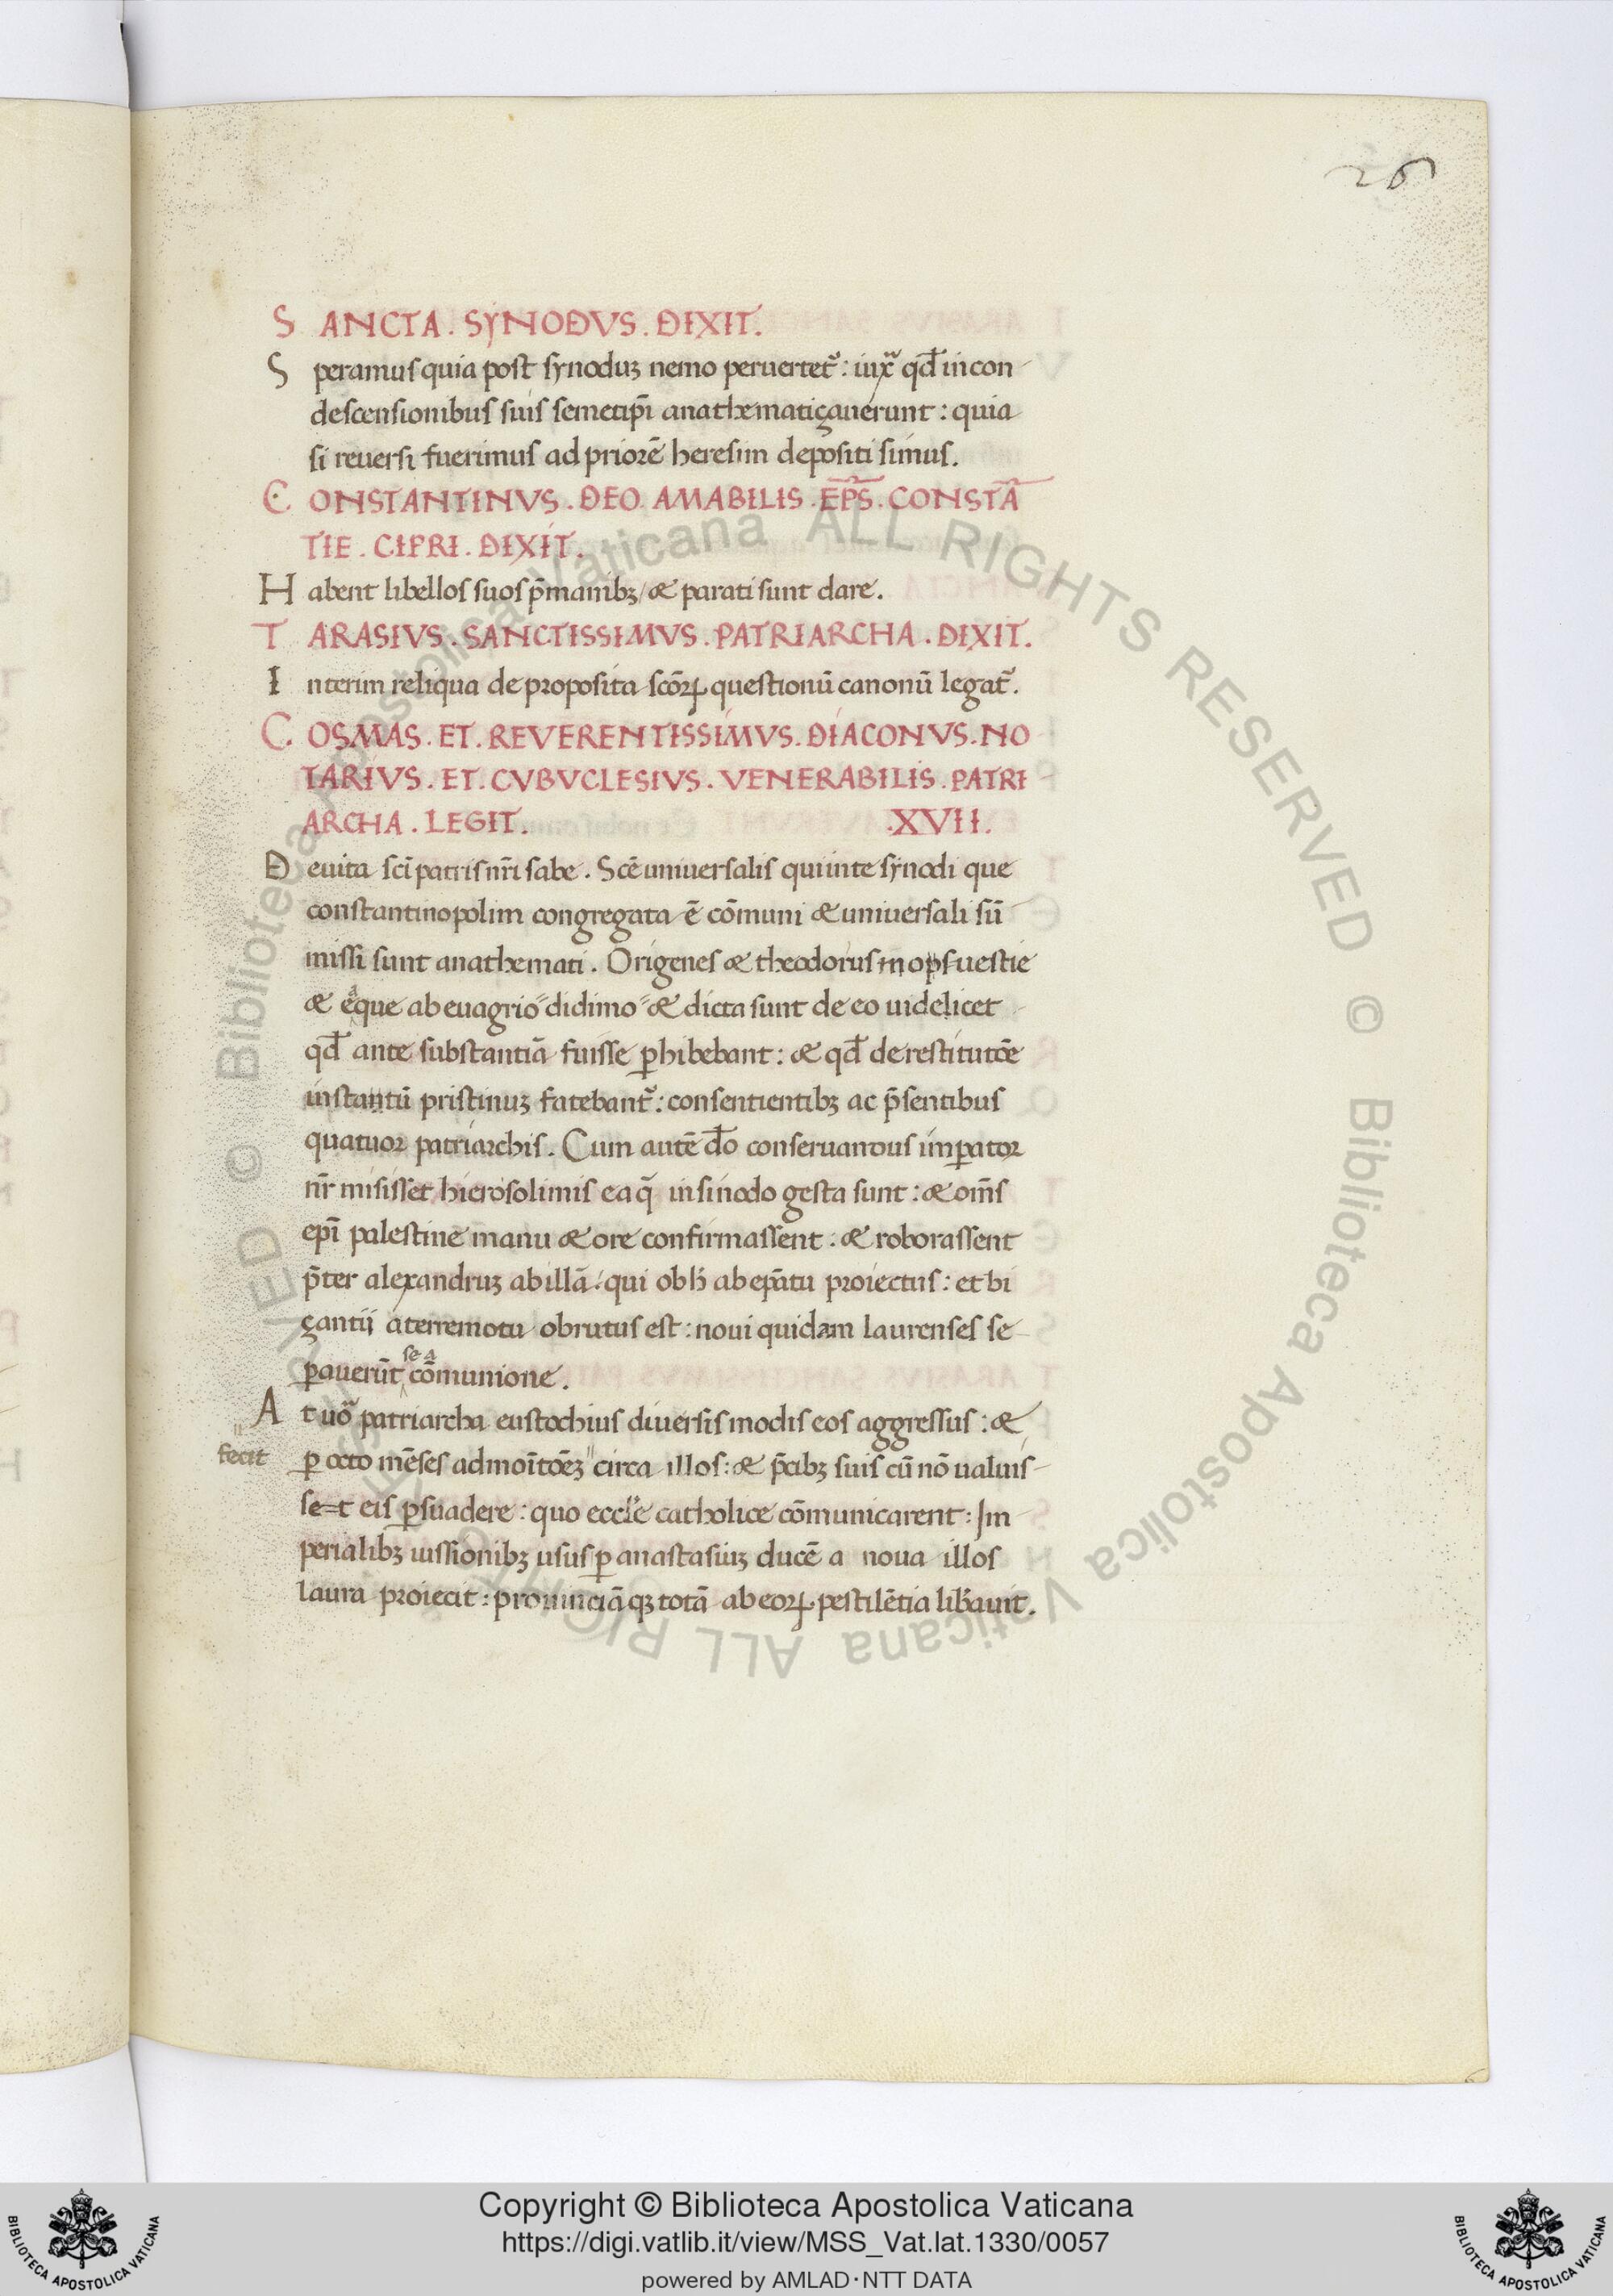 26
SANCTA . SYNODVS . DIXIT .
Speramus quia post synoduꝫ nemo peruertet᷑ : iuxᷓ qđ in con
descensionibus suis semetip̄i anathematiçauerunt : quia
si reuersi fuerimus ad priorē heresim depositi simus .
CONSTANTINVS . DEO . AMABILIS . EP̄S . CONSTĀ
TIE . CIPRI . DIXIT .
Habent libellos suos p̄ manibꝫ / & parati sunt dare .
TARASIVS . SANCTISSIMVS . PATRIARCHA . DIXIT .
Interim reliqua de proposita scōꝝ questionū canonū legat᷑ .
COSMAS . ET . REVERENTISSIMVS . DIACONVS . NO
TARIVS . ET . CVBVCLESIVS . VENERABILIS . PATRI
ARCHA . LEGIT . .XVII.
De uita sc̄i patris nr̄i sabe . Scē uniuersalis quinte synodi que
constantinopolim congregata ē cōmuni & uniuersali sū
missi sunt anathemati . Origenes & theodorus mopsuestie
& eaque ab euagrio didimo & dicta sunt de eo uidelicet
qđ ante substantiā fuisse ꝑhibebant : & qđ de restitutōe
instantū pristinuꝫ fatebant᷑ : consentientibꝫ ac p̄sentibus
quatuor patriarchis . Cum autē đo conseruandus imꝑator
nr̄ misisset hierosolimis ea q̄ in sinodo gesta sunt : & om̄s
ep̄i palestine manu & ore confirmassent : & roborassent
p̄ter alexandruꝫ ab illā : qui ob ħ ab ep̄atu proiectus : et bi
çantii a terremotu obrutus est : noui quidam laurenses se
ꝑauerūt se a cōmunione .
At uō patriarcha eustochius diuersis modis eos aggressus : &
fecit
ꝑ octo mēses admoītōeꝫ circa illos : & p̄cibꝫ suis cū nō ualuis
se=t eis ꝑsuadere : quo eccľe catholice cōmunicarent : Im
perialibꝫ iussionibꝫ usus ꝑ anastasiuꝫ ducē a noua illos
laura proiecit : prouinciā qꝫ totā ab eoꝝ pestilētia liƀauit .
© Biblioteca Apostolica Vaticana ALL RIGHTS RESERVED © Biblioteca Apostolica Vaticana ALL RIGHTS RESERVED
Copyright © Biblioteca Apostolica Vaticana
https://digi.vatlib.it/view/MSS_Vat.lat.1330/0057
powered by AMLAD・NTT DATA
BIBLIOTECA APOSTOLICA VATICANA
BIBLIOTECA APOSTOLICA VATICANA